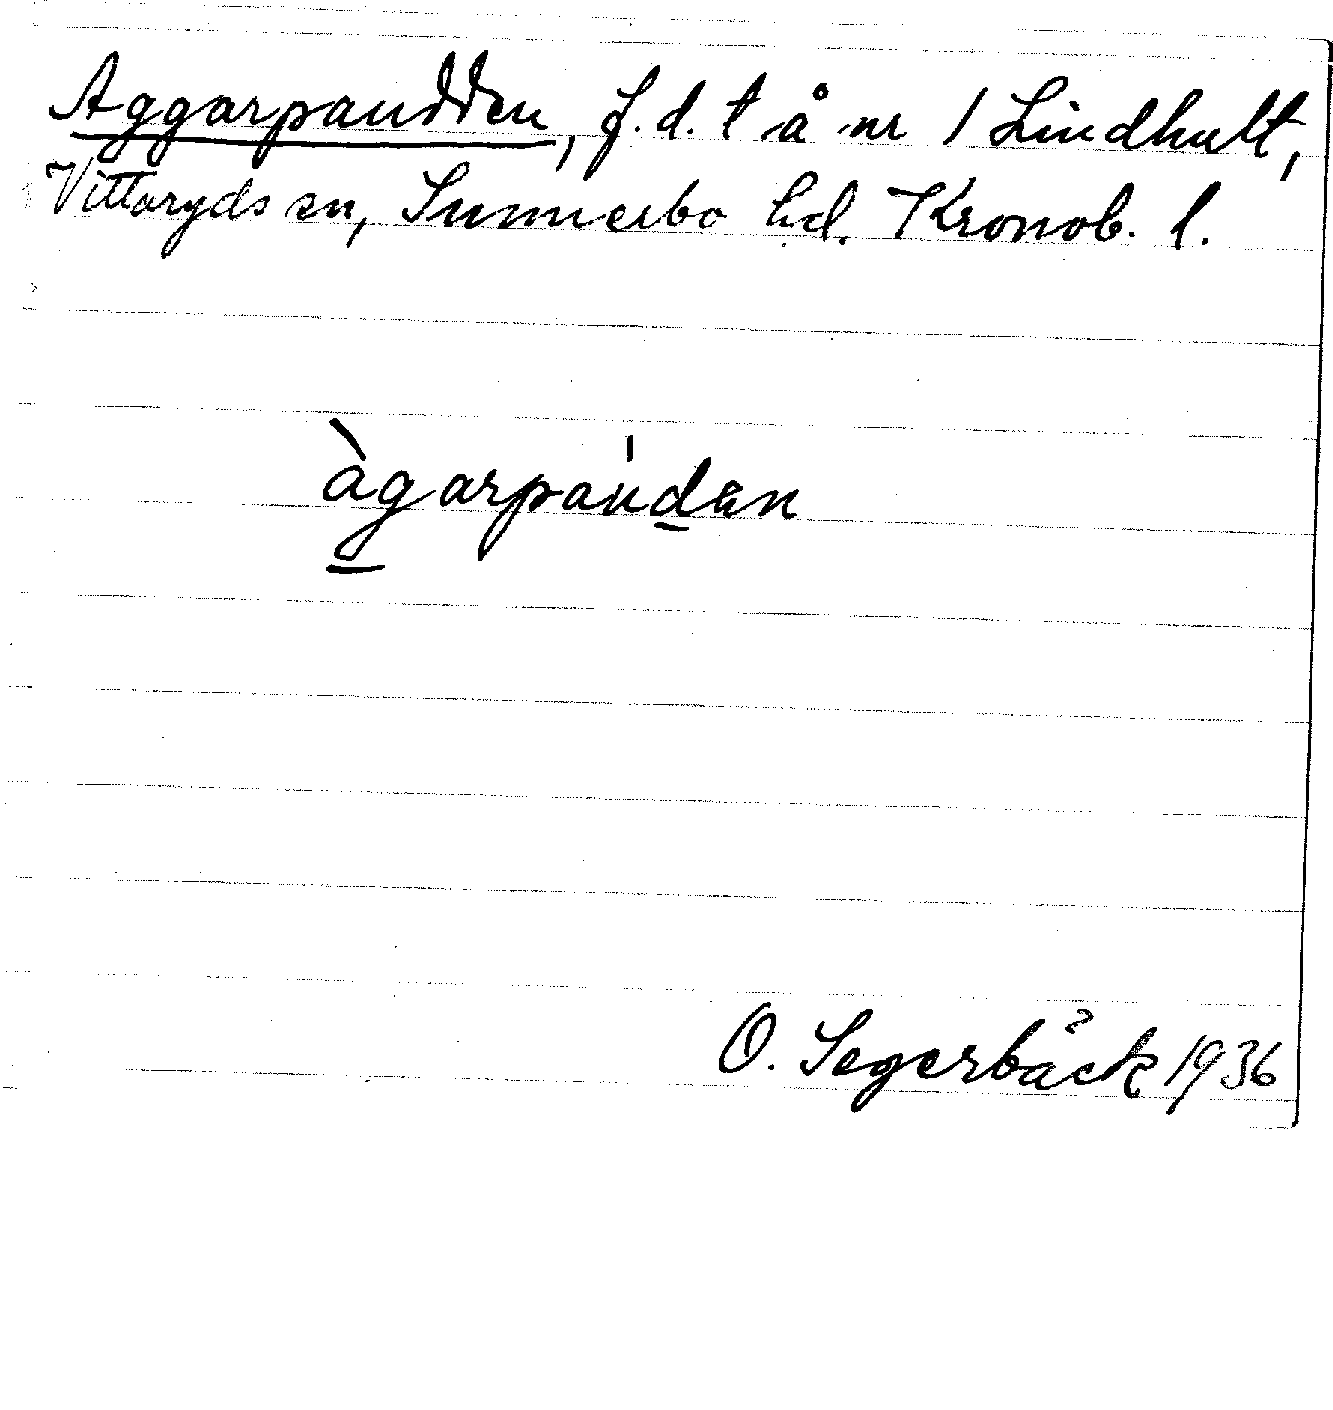 Aggarpaudden, f.d. t å nr 1 Lindhult,
Vittaryds sn, Sunnerbo hd. Kronob. l.
àgarpaudan
O. Segerbäck 1936